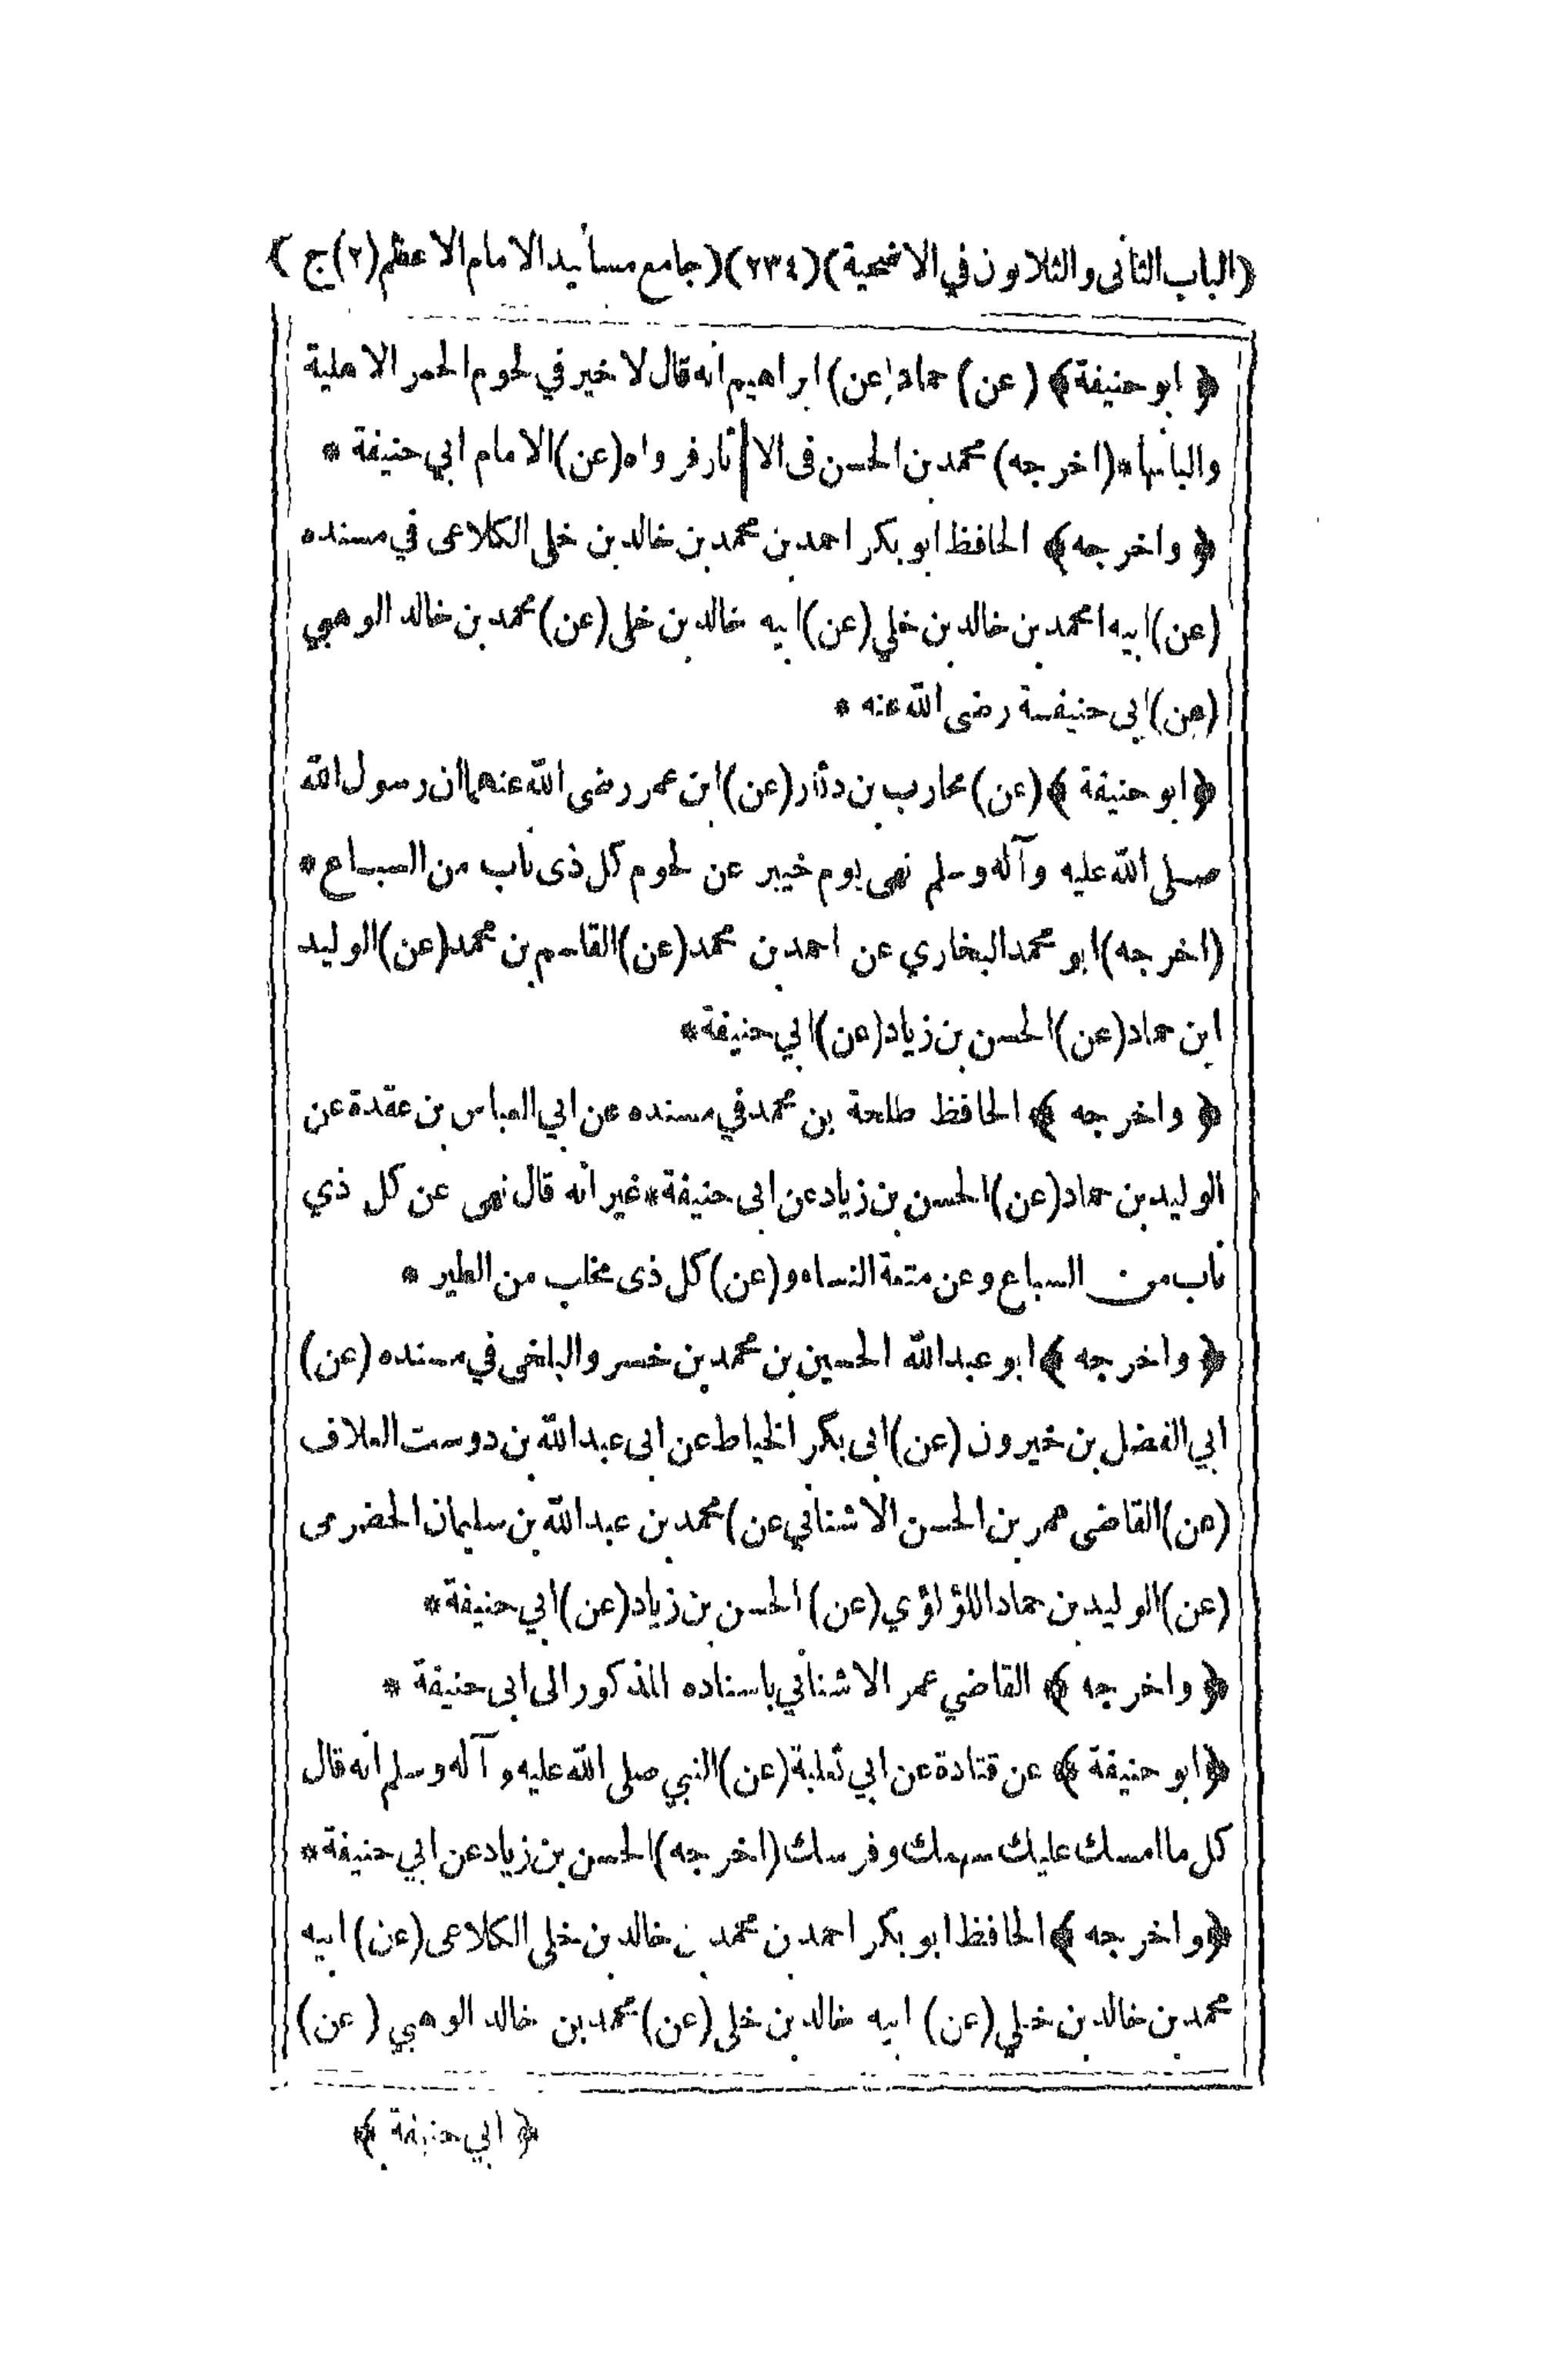 (الباب الثانى والثلاثون في الاضحية) (٢٣٤) (جامع مسانيد الامام الاعظم (٢) ج)
﴿ ابو حنيفة ﴾ (عن) حماد (عن) ابراهيم انه قال لا خير في لحوم الحمر الاهلية
والبانها * (اخرجه) محمد بن الحسن فى الا ثار فرواه (عن) الامام ابي حنيفة *
﴿ واخرجه ﴾ الحافظ ابو بكر احمد بن محمد بن خالد بن خلى الكلاعى في مسنده
(عن) ابيه محمد بن خالد بن خلي (عن) ابيه خالد بن خلى (عن) محمد بن خالد الوهبي
(عن) ابى حنيفة رضى الله عنه *
﴿ ابو حنيفة ﴾ (عن) محارب بن دثار (عن) ابن عمر رضى الله عنهما ان رسول الله
صلى الله عليه وآله وسلم نهى يوم خيبر عن لحوم كل ذى ناب من السباع *
(اخرجه) ابو محمد البخاري عن احمد بن محمد (عن) القاسم بن محمد (عن) الوليد
ابن حماد (عن) الحسن بن زياد (عن) ابي حنيفة *
﴿ واخرجه ﴾ الحافظ طلحة بن محمد في مسنده عن ابي العباس بن عقدة عن
الوليد بن حماد (عن) الحسن بن زياد عن ابى حنيفة * غير انه قال نهى عن كل ذي
ناب من السباع وعن متعة النساء و (عن) كل ذى مخلب من الطير *
﴿ واخرجه ﴾ ابو عبدالله الحسين بن محمد بن خسرو البلخى في مسنده (عن)
ابي الفضل بن خيرون (عن) ابى بكر الخياط عن ابى عبدالله بن دوست العلاف
(عن) القاضى عمر بن الحسن الاشناني عن) محمد بن عبدالله بن سليمان الحضرمى
(عن) الوليد بن حماد اللؤلؤي (عن) الحسن بن زياد (عن) ابي حنيفة *
﴿ واخرجه ﴾ القاضي عمر الاشناني باسناده المذكور الى ابى حنيفة *
﴿ ابو حنيفة ﴾ عن قتادة عن ابي ثعلبة (عن) النبي صلى الله عليه وآله وسلم انه قال
كل ما امسك عليك سهمك وفرسك (اخرجه) الحسن بن زياد عن ابي حنيفة *
﴿ واخرجه ﴾ الحافظ ابو بكر احمد بن محمد بن خالد بن خلى الكلاعى (عن) ابيه
محمد بن خالد بن خلي (عن) ابيه خالد بن خلى (عن) محمد بن خالد الوهبي (عن)
﴿ ابي حنيفة ﴾